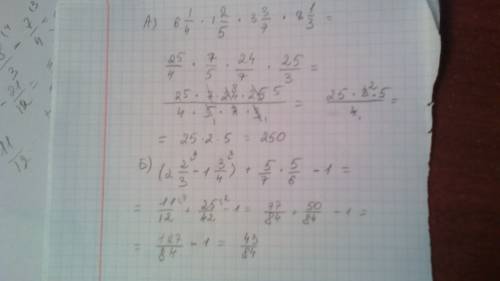 А) 6 1/4 · 1 2/5 · 3 3/7 · 8 1/3 =
25/4 · 7/5 · 24/7 · 25/3 =
(25 · 7 · 24 · 25 5)/(4 · 5 1 · 7 · 3 1) = (25 · 8 2 · 5)/(4 1) =
= 25 · 2 · 5 = 250
Б) (2 2/3 - 1 3/4) + 5/7 · 5/6 - 1 =
= 11/12 + 25/42 - 1 = 77/84 + 50/84 - 1 =
= 127/84 - 1 = 43/84